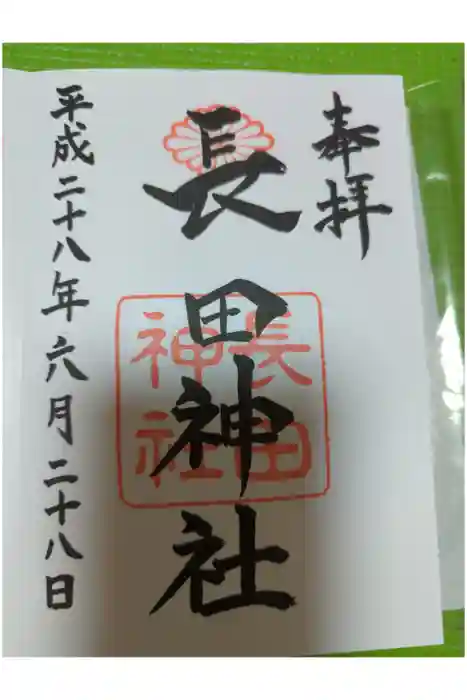 奉拝
長田神社
長田
神社
平成二十八年六月二十八日